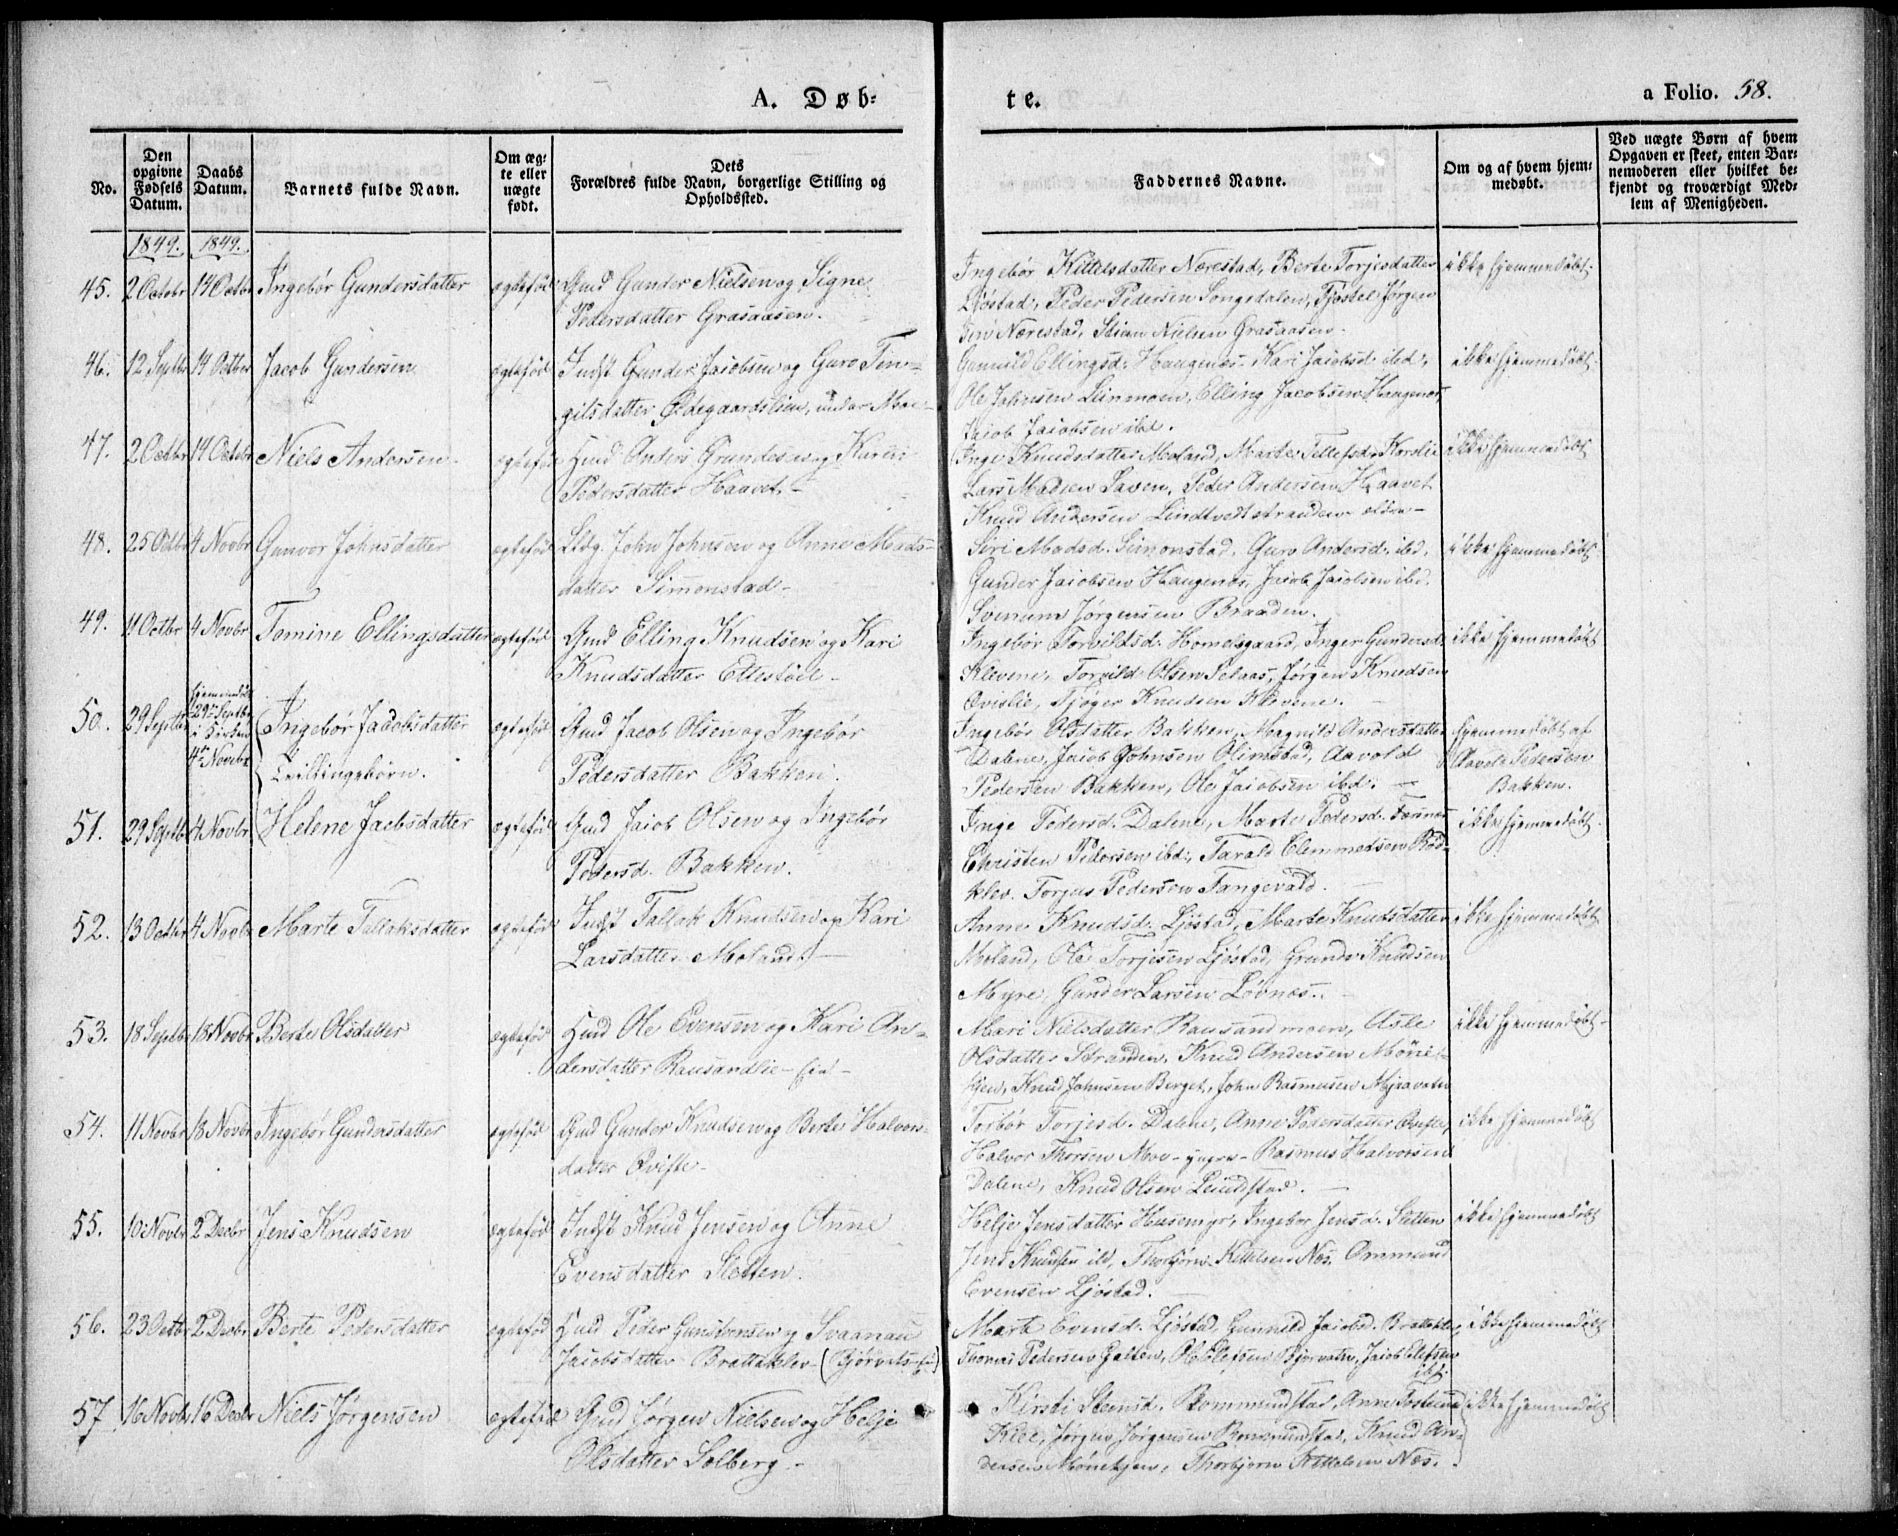 A. Døb-
te.
a Folio. 58.
No.
Den opgivne Fødsels Datum.
Daabs Datum.
Barnets fulde Navn.
Om ægte eller uægte født.
Dets Forældres fulde Navn, borgerlige Stilling og Opholdssted.
Faddernes Navne.
Om og af hvem hjemmedøbt.
Ved uægte Børn af hvem Opgaven er skeet, enten Barnemoderen eller hvilket bekjendt og troværdigt Medlem af Menigheden.
1849. 1849.
45. 2 Octobr 14 Octbr Ingebør Gundersdatter ægtefød Gmd Gunder Nielsen og Signe
Pedersdatter Grasaasen.
Ingebør Kittelsdatter Nærestad, Berte Torjesdatter
Ljøstad, Peder Pedersen Songedalen, Tjøstel Jørgen
sen Nærestad, Stian Nielsen Grasaasen.
ikke hjemmedøbt.
46. 12 Septbr 14 Octbr Jacob Gundersen ægtefød Indst Gunder Jacobsen og Guro Ten-
gilsdatter Ødegaardslien, under
Gunnild Ellingsd. Haugenes, Kari Jacobsd. ibd.,
Ole Johnsen Leinmoen, Elling Jacobsen Haugenes,
Jacob Jacobsen ibd.
ikke hjemmedøbt.
47. 2 Octbr 14 Octobr Niels Andersen ægtefød Huusmd Anders Grundesen og Karen
Pedersdatter Haavet.
Inge Knudsdatter Moland, Marte Tellefsd.
Lars Madsen Saven, Peder Andersen Haavet
Knud Andersen Lindtvedtstranden ældre
ikke hjemmedøbt
48. 25 Octbr 4 Novbr Gunvor Johnsdatter ægtefød John Johnsen og Anne Mads-
datter Simonstad
Siri Madsd. Simonstad, Guro Andersd. ibd,
Gunder Jacobsen Haugenes, Jacob Jacobsen ibd.
Svenum Jørgensen Braaden.
ikke hjemmedøbt
49. 11 Octbr 4 Novbr Tomine Ellingsdatter ægtefød Gmd Elling Knudsen og Kari
Knudsdatter Ettestøl
Ingebør Torvildsd. Homelsgaard, Inger Gundersd.
Klevene, Torvild Olsen Selaas, Jørgen Knudsen
Øvislie, Tjøger Knudsen Klevene.
ikke hjemmedøbt
50. 29 Septbr hjemmedøbt 29de Septbr i Kirken 4de Novbr Ingebør Jacobsdatter ægtefød Gmd Jacob Olsen og Ingebør
Tvillingebørn. Pedersdatter Bakken.
Ingebør Olsdatter Bakken, Magnild Andersdatter
Dalene, Jacob Johnsen Olimstad, Aavold
Pedersen Bakken, Ole Jacobsen ibd.
hjemmedøbt af
Aavold Pedersen
Bakken.
51. 29 Septbr 4 Novbr Helene Jacbsdatter ægtefød Gmd Jacob Olsen og Ingebør
Pedersd. Bakken.
Inge Pedersd. Dalene, Marte Pedersd.
Christen Pedersen ibd., Tarald Clemmedsen Bød-
klev. Torjus Pedersen Tangevald.
ikke hjemmedøbt.
52. 13 Octbr 4 Novbr Marte Tallaksdatter ægtefød Indst Tallak Knudsen og Kari
Larsdatter Moland
Anne Knudsd. Ljøstad, Marte Knutsdatter
Moland, Ole Torjesen Ljøstad, Grunde Knudsen
Myre, Gunder Larsen Løvnes.
ikke hjemmedøbt
53. 18 Septbr 18 Novbr Berte Olsdatter ægtefød Ole Evensen og Kari An-
dersdatter Rausandlie
Mari Nielsdatter Rausandmoen, Asle
Olsdatter Stranden, Knud Andersen Møne-
tjen, Knud Johnsen Berget, John Rasmusen Mjaavatn
ikke hjemmedøbt
54. 11 Novbr 18 Novbr Ingebør Gundersdatter ægtefød Gmd Gunder Knudsen og Berte Halvors-
datter Øvifte
Torbør Torjesd. Dalene, Anne Pedersdatter Øvifte,
Halvor Thorsen Moe yngre Rasmus Halvorsen
Dalene, Knud Olsen Leiulfstad.
ikke hjemmedøbt
55. 10 Novbr 2 Decbr Jens Knudsen ægtefød Indst Knud Jensen og Anne
Evensdatter Sletten.
Helje Jensdatter Husemyr, Ingebor Jensd. Sletten
Jens Knudsen ibd, Thorbjørn Kittelsen Næs, Ommund
Evensen Ljøstad.
ikke hjemmedøbt
56. 23 Octbr 2 Decbr Berte Pedersdatter ægtefød Peder Gunstensen og Svaanau
Jacobsdatter Brattaklev (Bjørvatn)
Marte Evensd. Ljøstad, Gunnild Jacobsd. Brattaklev,
Thomas Pedersen Galten, Ole Elefsen Bjorvatn, Jacob Elefsen
ibd.
ikke hjemmedøbt
57. 16 Novbr 16 Decbr Niels Jørgensen ægtefød Gmd Jørgen Nielsen og Helje
Olsdatter Solberg.
Kirsti Steensd. Rommundstad, Anne
Klev, Jørgen Jørgensen Rommundstad, Knud An-
dersen Mønetjen, Thorbjørn Kittelsen Næs.
ikke hjemmedøbt